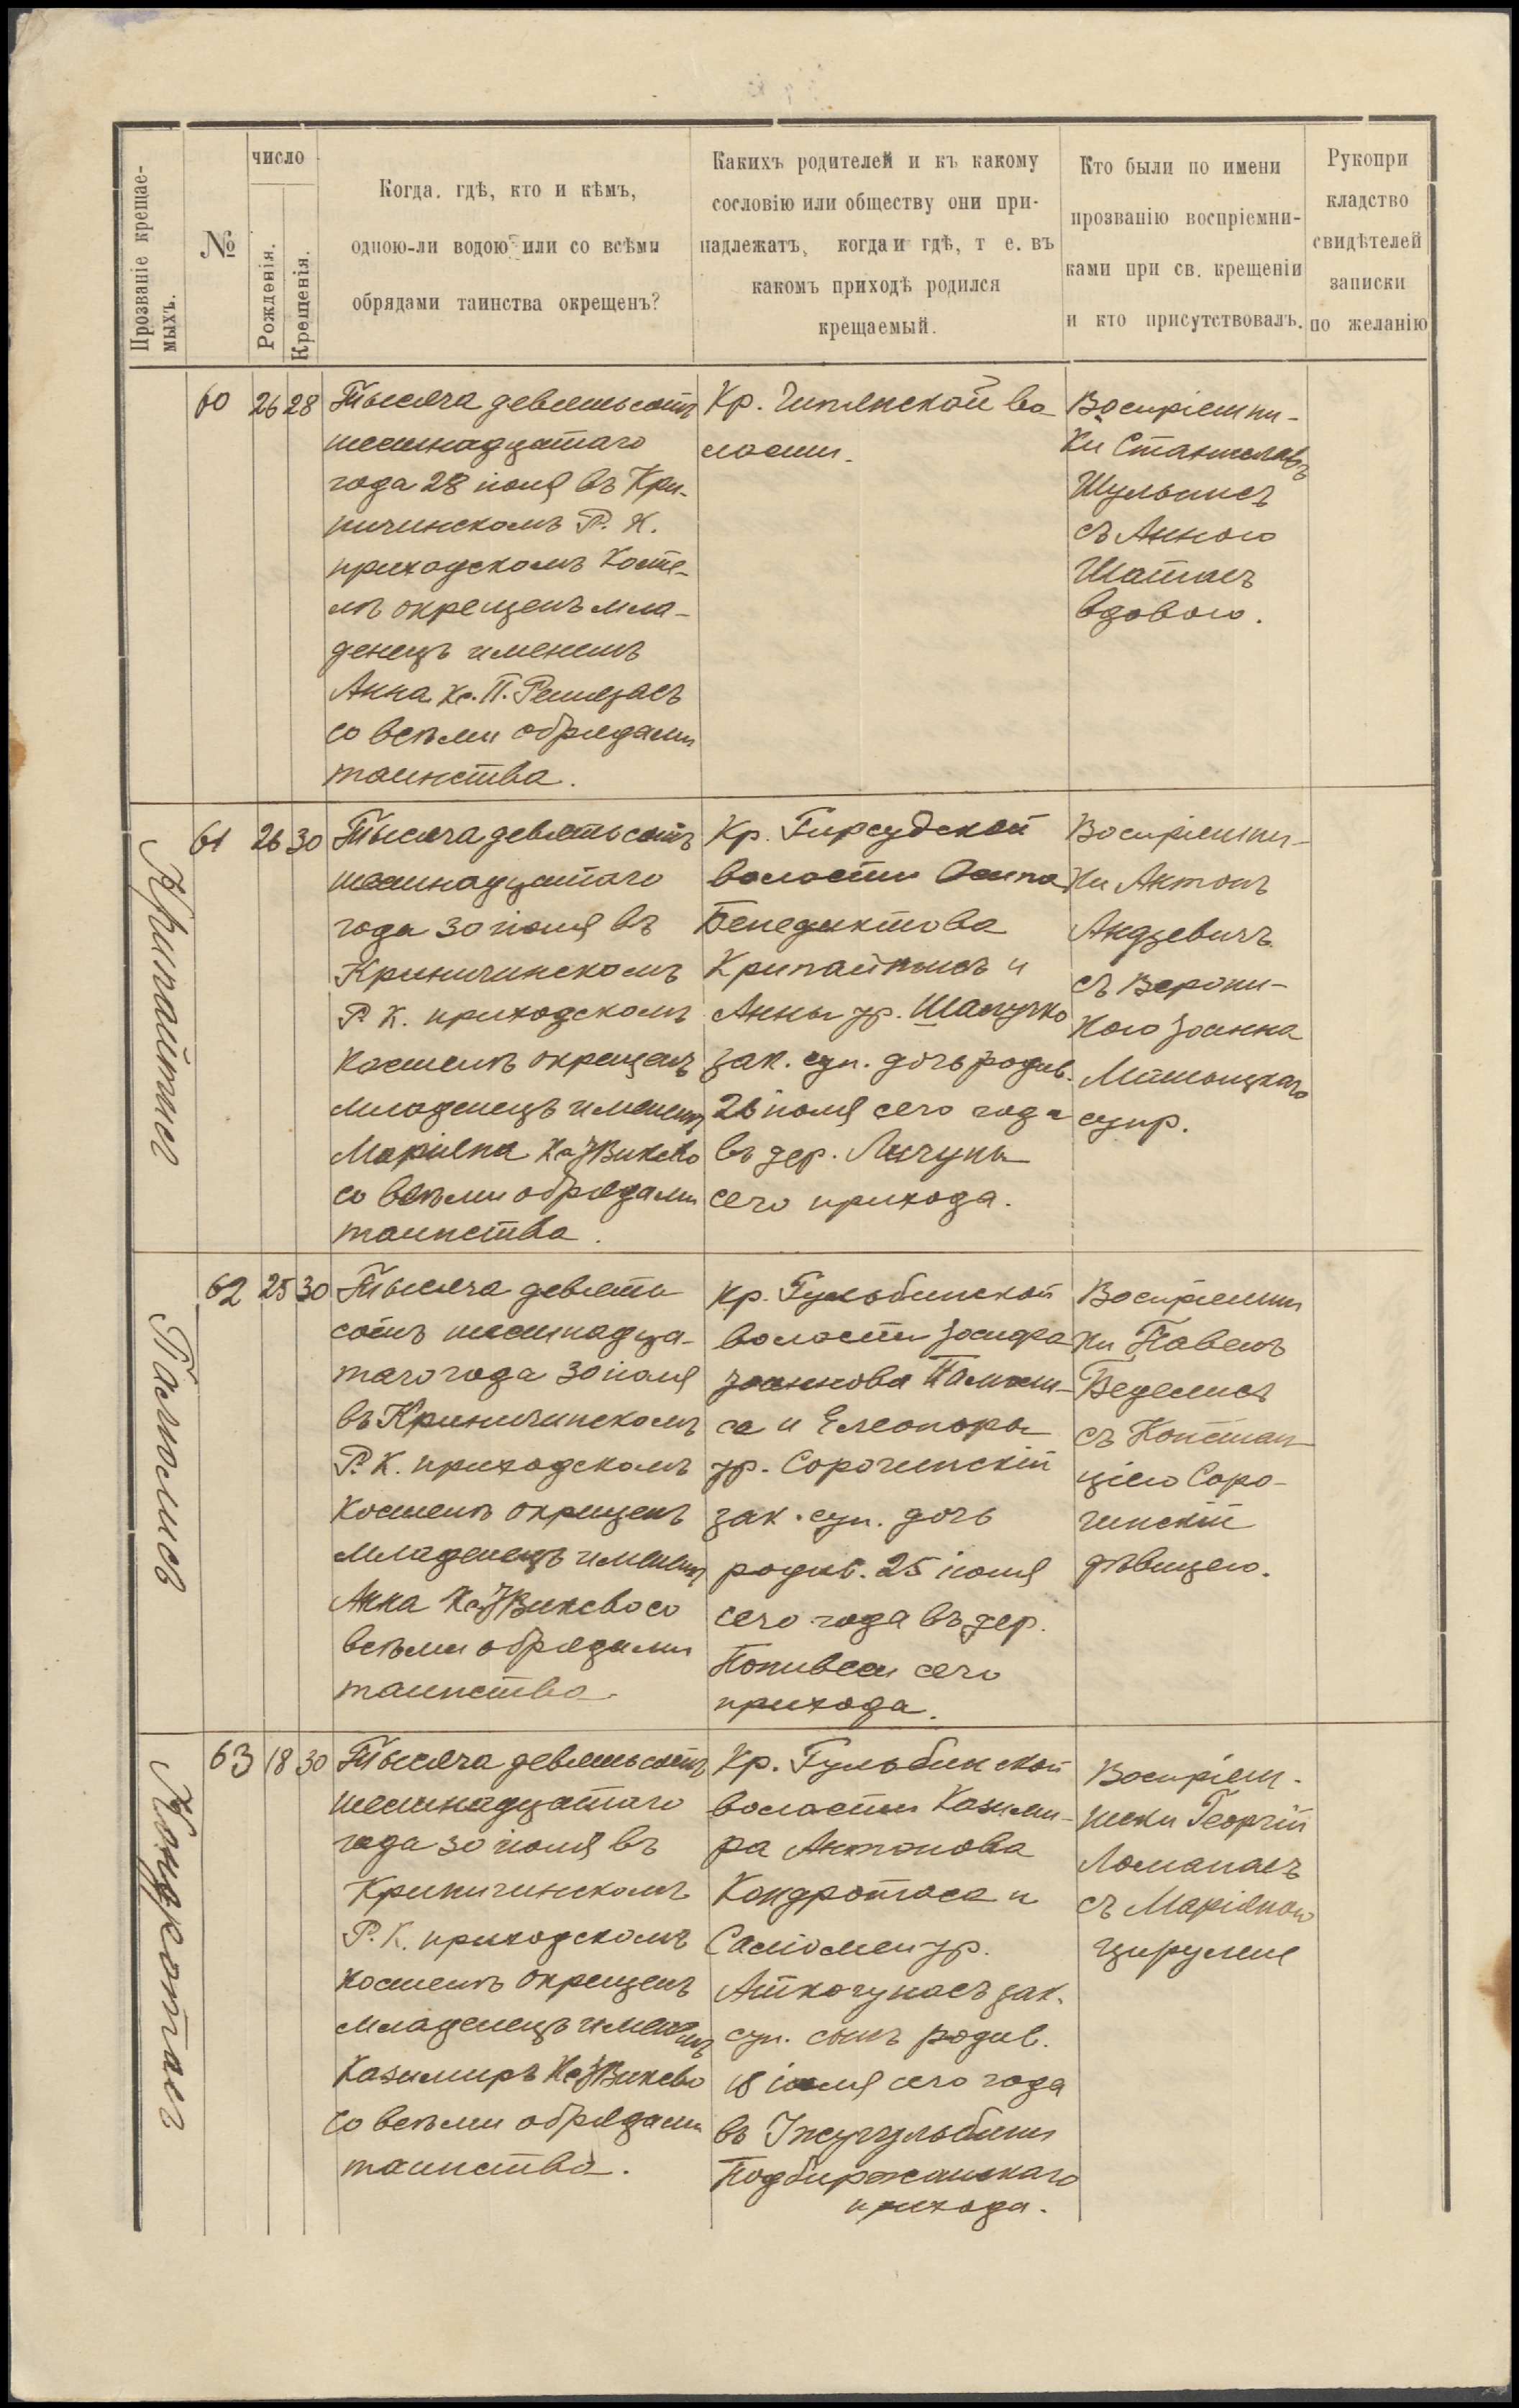 Прозваніе крещае-
мыхъ.
№
число
Рожденія.
Крещенія.
Когда, гдѣ, кто и кѣмъ,
одною-ли водою или со всѣми
обрядами таинства окрещенъ?
Какихъ родителей и къ какому
сословію или обществу они при-
надлежатъ, когда и гдѣ, т е. въ
какомъ приходѣ родился
крещаемый.
Кто были по имени
прозванію воспріемни-
ками при св. крещеніи
и кто присутствовалъ.
Рукопри
кладство
свидѣтелей
записки
по желанію
60
26
28
Тысяча девятьсотъ
шестнадцатаго
года 28 іюля въ Кри-
ничинскомъ Р. К.
приходскомъ Косте-
лѣ окрещенъ мла-
денецъ именемъ
Анна Кс. П.
со всѣми обрядами
таинства.
Кр. Чипянской во
лости.
Воспріемни-
ки Станиславъ
Шульписъ
съ Анною
Шатасъ
вдовою.
Крипайтисъ
61
26
30
Тысяча девятьсотъ
шестнадцатаго
года 30 іюля въ
Криничинскомъ
Р. К. приходскомъ
Костелѣ окрещенъ
младенецъ именемъ
Маріяна
со всѣми обрядами
таинства.
Кр. Гирсудской
волости Осипа
Бенедиктова
Крипайтисъ и
Анны ур.
зак. суп. дочь родив.
26 іюля сего года
въ дер. Личуны
сего прихода.
Воспріемни-
ки Антонъ
Андзевичъ
съ Верони-
кою Іоанна
супр.
Палюлисъ
62
25
30
Тысяча девять
сотъ шестнадца-
таго года 30 іюля
въ Криничинскомъ
Р. К. приходскомъ
Костелѣ окрещенъ
младенецъ именемъ
Анна со
всѣми обрядами
таинства.
Кр. Гульбинской
волости Іосифа
Іоаннова Палюли-
са и Елеоноры
ур. Сорочинскій
зак. суп. дочь
родив. 25 іюля
сего года въ дер.
сего
прихода.
Воспріемни
ки Павелъ
Беделисъ
съ Констан-
ціею Соро-
чинскій
дѣвицею.
Кондротасъ
63
18
30
Тысяча девятьсотъ
шестнадцатаго
года 30 іюля въ
Криничинскомъ
Р. К. приходскомъ
Костелѣ окрещенъ
младенецъ именемъ
Казимиръ
со всѣми обрядами
таинства.
Кр. Гульбинской
волости Казими-
ра Антонова
Кондротаса и
Саліомеи ур.
Аткочунасъ зак.
суп. сынъ родив.
18 іюля сего года
въ Ужугульбини
Подбиржанскаго
прихода.
Воспріем-
ники Георгій
Ломанасъ
съ Маріяною
Цируліе